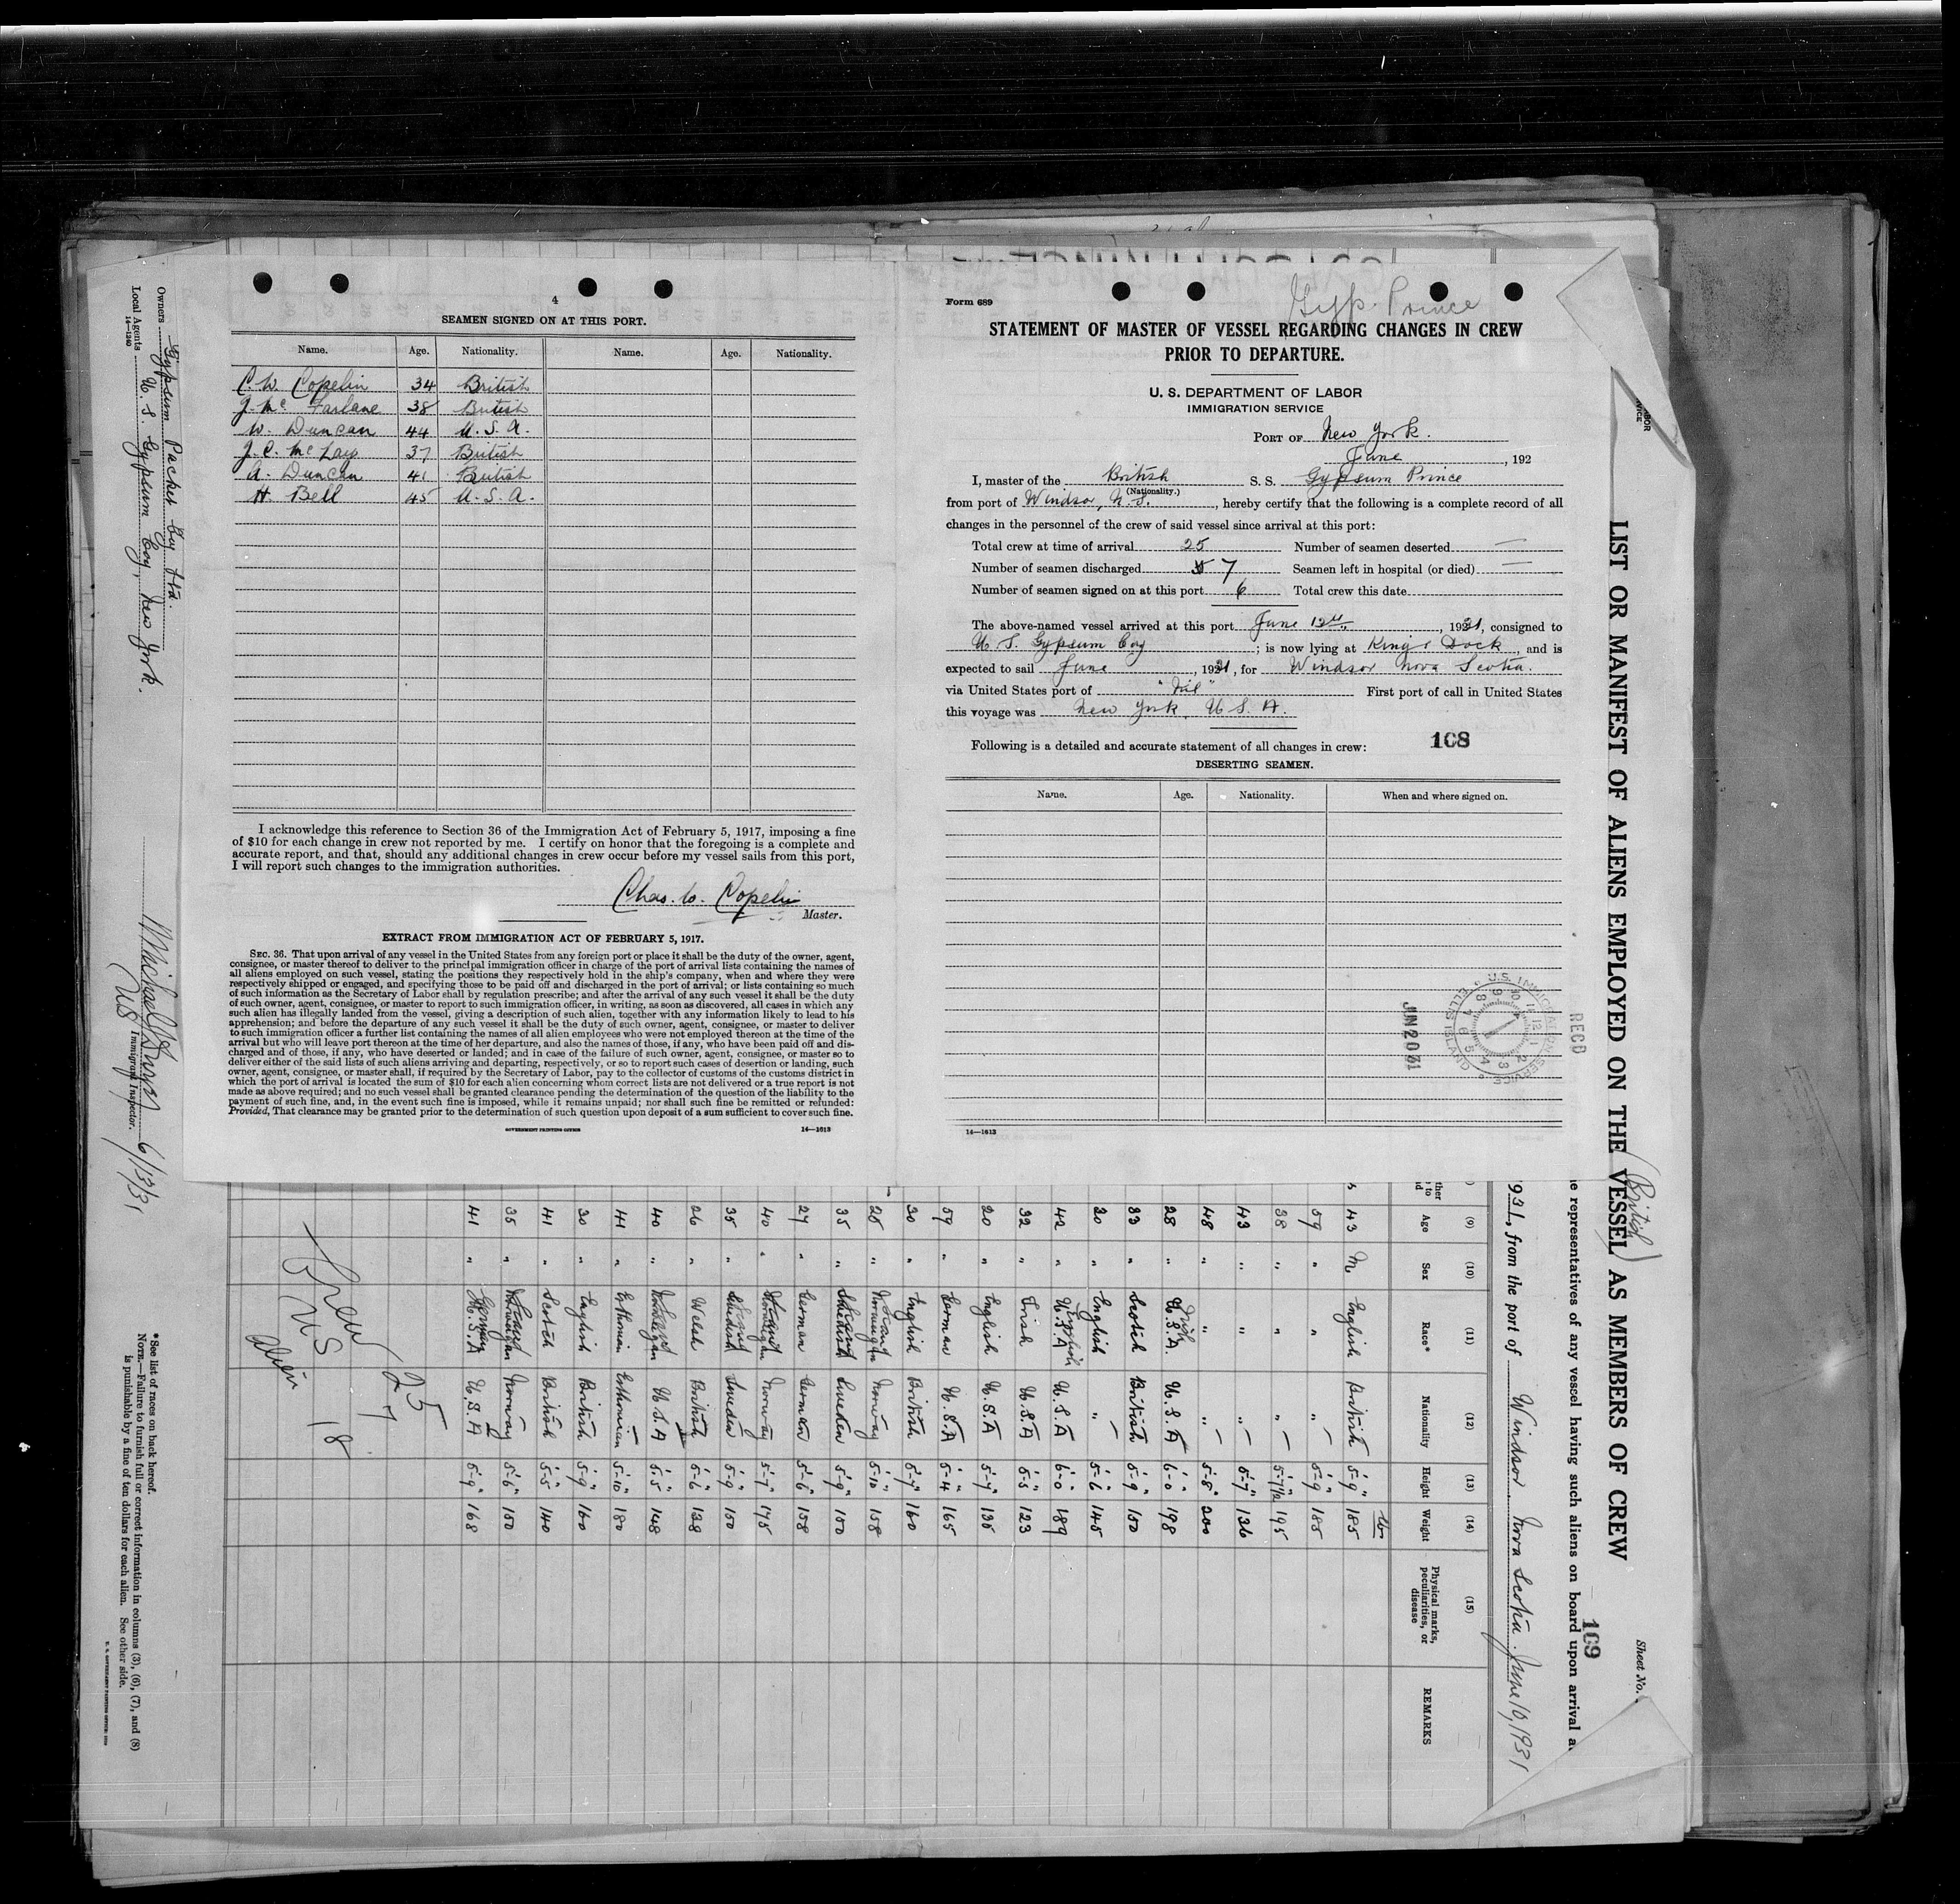 4
SEAMEN SIGNED ON AT THIS PORT.
Name. Age. Nationality. Name. Age. Nationality.
C. W. Copelin 34 British
J. Mc Farlane 38 British
W. Duncan 44 U. S. A.
J. C. McLay 37 British
A. Duncan 41 British
H. Bell 45 U. S. A.
I acknowledge this reference to Section 36 of the Immigration Act of February 5, 1917, imposing a fine
of $10 for each change in crew not reported by me. I certify on honor that the foregoing is a complete and
accurate report, and that, should any additional changes in crew occur before my vessel sails from this port,
I will report such changes to the immigration authorities.
Chas. W. Copelin
Master.
EXTRACT FROM IMMIGRATION ACT OF FEBRUARY 5, 1917.
SEC. 36. That upon arrival of any vessel in the United States from any foreign port or place it shall be the duty of the owner, agent,
consignee, or master thereof to deliver to the principal immigration officer in charge of the port of arrival lists containing the names of
all aliens employed on such vessel, stating the positions they respectively hold in the ship's company, when and where they were
respectively shipped or engaged, and specifying those to be paid off and discharged in the port of arrival; or lists containing so much
of such information as the Secretary of Labor shall by regulation prescribe; and after the arrival of any such vessel it shall be the duty
of such owner, agent, consignee, or master to report to such immigration officer, in writing, as soon as discovered, all cases in which any
such alien has illegally landed from the vessel, giving a description of such alien, together with any information likely to lead to his
apprehension; and before the departure of any such vessel it shall be the duty of such owner, agent, consignee, or master to deliver
to such immigration officer a further list containing the names of all alien employees who were not employed thereon at the time of the
arrival but who will leave port thereon at the time of her departure, and also the names of those, if any, who have been paid off and dis-
charged and of those, if any, who have deserted or landed; and in case of the failure of such owner, agent, consignee, or master so to
deliver either of the said lists of such aliens arriving and departing, respectively, or so to report such cases of desertion or landing, such
owner, agent, consignee, or master shall, if required by the Secretary of Labor, pay to the collector of customs of the customs district in
which the port of arrival is located the sum of $10 for each alien concerning whom correct lists are not delivered or a true report is not
made as above required; and no such vessel shall be granted clearance pending the determination of the question of the liability to the
payment of such fine, and, in the event such fine is imposed, while it remains unpaid; nor shall such fine be remitted or refunded:
Provided, That clearance may be granted prior to the determination of such question upon deposit of a sum sufficient to cover such fine.
GOVERNMENT PRINTING OFFICE 14—1613
Form 689
Gyp. Prince
STATEMENT OF MASTER OF VESSEL REGARDING CHANGES IN CREW
PRIOR TO DEPARTURE.
U. S. DEPARTMENT OF LABOR
IMMIGRATION SERVICE
PORT OF New York.
June, 192
I, master of the British S. S. Gypsum Prince
(Nationality.)
from port of Windsor, N. S., hereby certify that the following is a complete record of all
changes in the personnel of the crew of said vessel since arrival at this port:
Total crew at time of arrival 25 Number of seamen deserted —
Number of seamen discharged 7 Seamen left in hospital (or died) —
Number of seamen signed on at this port 6 Total crew this date
The above-named vessel arrived at this port June 12th, 1931, consigned to
U. S. Gypsum Coy; is now lying at Kings Dock, and is
expected to sail June, 1931, for Windsor Nova Scotia.
via United States port of "Nil" First port of call in United States
this voyage was New York, U. S. A.
Following is a detailed and accurate statement of all changes in crew: 108
DESERTING SEAMEN.
Name. Age. Nationality. When and where signed on.
RECD
U.S. IMMIGRATION SERVICE ELLIS ISLAND
JUN 20 31
14—1613
LIST OR MANIFEST OF ALIENS EMPLOYED ON THE VESSEL AS MEMBERS OF CREW
(British)
Sheet No.
109
e representatives of any vessel having such aliens on board upon arrival a
931, from the port of Windsor. Nova Scotia. June 10, 1931
(9) (10) (11) (12) (13) (14) (15)
Age Sex Race* Nationality Height Weight Physical marks, peculiarities, or disease REMARKS
lbs
43 M English British 5-9" 185
59 " " " 5-9 185
38 " " " 5-7½ 195
43 " " " 5-7" 136
48 " " " 5-8" 200
28 " Irish U.S.A. 6-0 198
33 " Scotch British 5-9 150
20 " English " 5-6 145
42 " English U.S.A 6-0 189
32 " Irish U.S.A 5-5 123
20 " English U.S.A 5-7" 135
59 " German U.S.A 5-4 165
30 " English British 5-7" 160
25 " Norway 5-10" 158
35 " Sweden 5-9" 150
27 " German German 5-6 158
40 " Norway 5-7" 175
35 " Sweden 5-9 150
26 " Welsh British 5-6" 138
40 " U.S.A 5-5 148
41 " Esthonian Esthonian 5-10" 180
30 " English British 5-9" 160
41 " Scotch British 5-5 140
35 " Norway 5-6" 150
41 " German U.S.A 5-9" 168
Crew 25
US 7
Alien 18
*See list of races on back hereof.
NOTE.—Failure to furnish full or correct information in columns (3), (6), (7), and (8)
is punishable by a fine of ten dollars for each alien. See other side.
Owners Gypsum Packet Coy Ltd.
Local Agents U. S. Gypsum Coy, New York.
14—1240
US Immigrant Inspector.
6/13/31